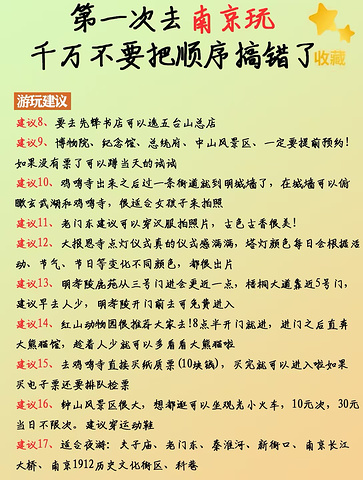 第一次去南京玩
千万不要把顺序搞错了
收藏
游玩建议
建议8、要去先锋书店可以选五台山总店
建议9、博物院、纪念馆、总统府、中山风景区、一定要提前预约!
如果没有票了可以蹲当天的试试
建议10、鸡鸣寺出来之后过一条街道就到明城墙了，在城墙可以俯
瞰玄武湖和鸡鸣寺，很适合女孩子来拍照
建议11、老门东建议可以穿汉服拍照片，古色古香很美!
建议12、大报恩寺点灯仪式真的仪式感满满，塔灯颜色每日会根据活
动、节气、节日等变化不同颜色，都很出片
建议13、明孝陵鹿苑从三号门进会更近一点，梧桐大道靠近5号门，
建议早去人少，明孝陵开门前去可免费进入
建议14、红山动物园很推荐大家去!8点半开门就进，进门之后直奔
大熊猫馆，趁着人少就可以多看看大熊猫啦
建议15、去鸡鸣寺直接买纸质票(10块钱)，买完就可以进入啦如果
买电子票还要排队检票
建议16、钟山风景区很大，想都逛可以坐观光小火车，10元次，30元
当日不限次。建议穿运动鞋
建议17、适合夜游：夫子庙、老门东、秦淮河、新街口、南京长江
大桥、南京1912历史文化街区、科巷